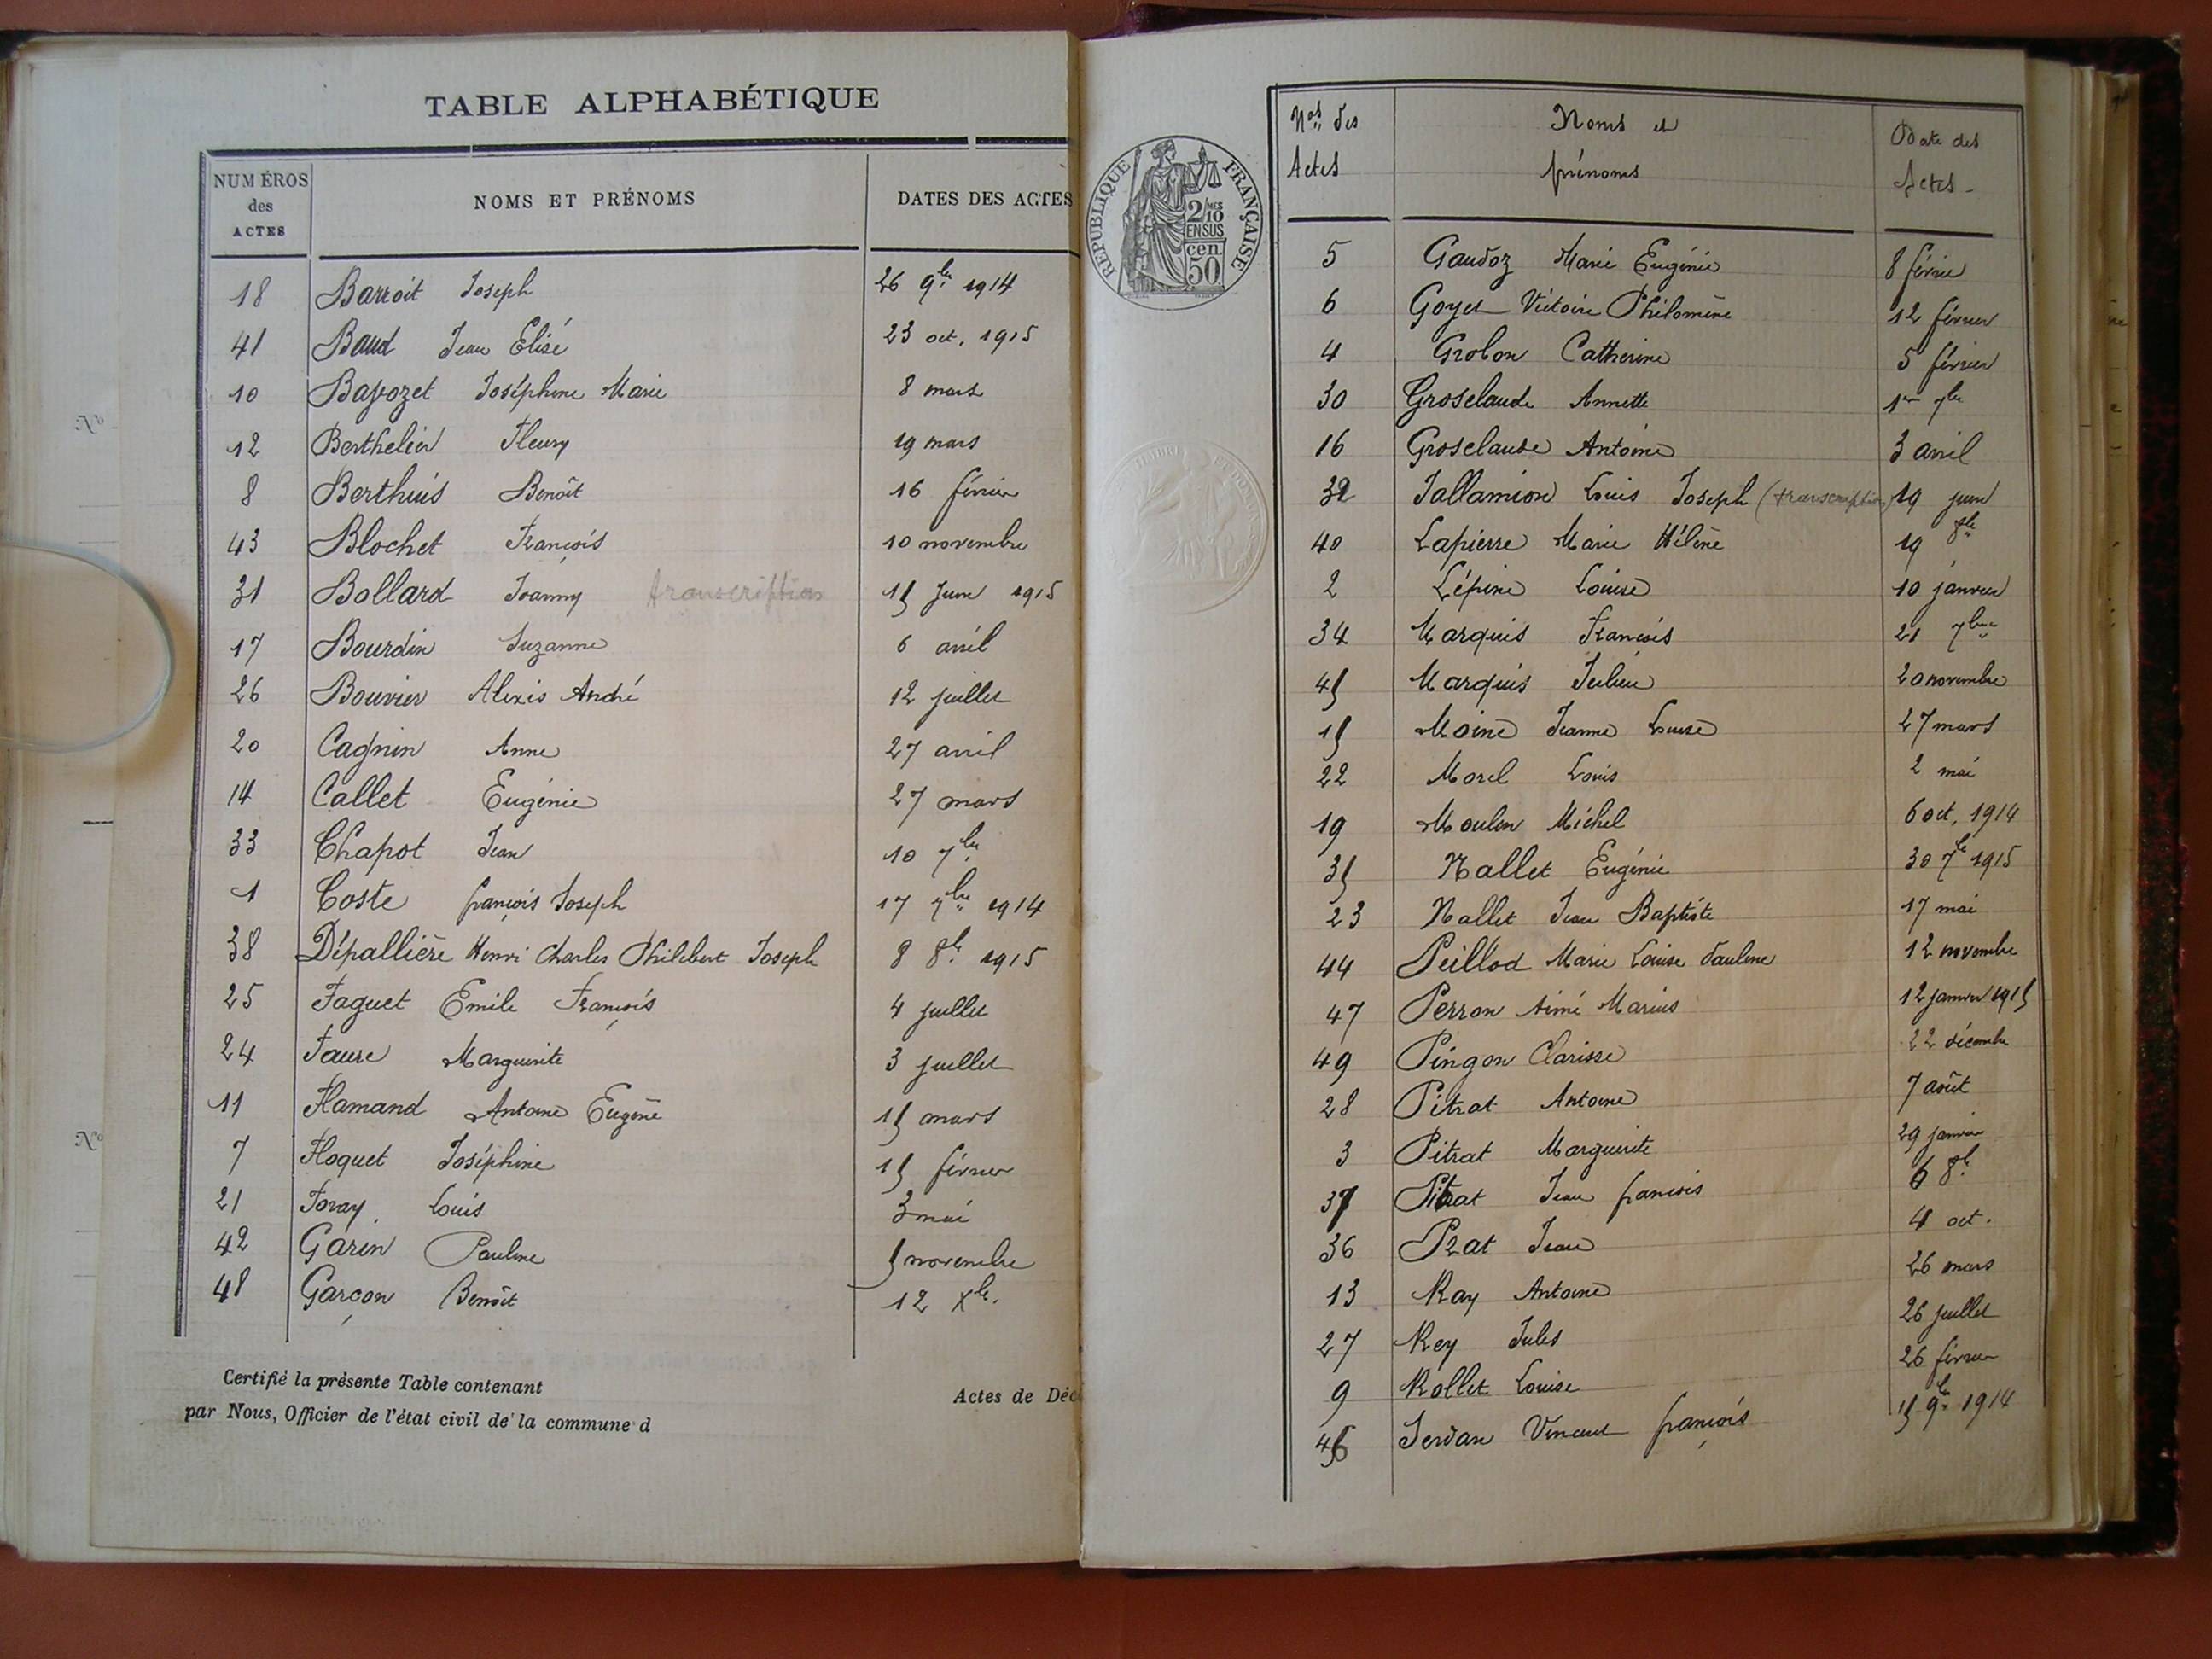 TABLE ALPHABÉTIQUE
NUMÉROS des ACTES NOMS ET PRÉNOMS DATES DES ACTES
18 Barroit Joseph 26 9bre 1914
41 Baud Jean Elisé 23 oct. 1915
10 Bavozet Joséphine Marie 8 mars
12 Berthelier Fleury 19 mars
8 Berthuis Benoît 16 février
43 Blochet François 10 novembre
31 Bollard Joanny transcription 15 Juin 1915
17 Bourdin Suzanne 6 avril
26 Bouvier Alexis André 12 juillet
20 Cagnin Anne 27 avril
14 Callet Eugénie 27 mars
33 Chapot Jean 10 7bre
1 Coste françois Joseph 17 7bre 1914
38 Dépallière Henri Charles Philibert Joseph 8 8bre 1915
25 Faguet Emile François 4 juillet
24 Faure Marguerite 3 juillet
11 Flamand Antoine Eugène 15 mars
7 Floquet Joséphine 15 février
21 Foray Louis 3 mai
42 Garin Pauline 5 novembre
48 Garçon Benoît 12 Xbre
Certifié la présente Table contenant Actes de Déc
par Nous, Officier de l'état civil de la commune d
RÉPUBLIQUE FRANÇAISE
2/10 MES
EN SUS
50 cen.
Nos des Actes Noms et prénoms Date des Actes
5 Gaudoz Marie Eugénie 8 février
6 Goyet Victoire Philomène 12 février
4 Grobon Catherine 5 février
30 Groselaude Annette 1er 7bre
16 Groselaude Antoine 3 avril
32 Jallamion Louis Joseph (transcription) 19 juin
40 Lapierre Marie Hélène 19 8bre
2 Lépine Louise 10 janvier
34 Marquis François 21 7bre
45 Marquis Julien 20 novembre
15 Moine Jeanne Louise 27 mars
22 Morel Louis 2 mai
19 Moulin Michel 6 oct. 1914
35 Nallet Eugénie 30 7bre 1915
23 Nallet Jean Baptiste 17 mai
44 Peillod Marie Louise Pauline 12 novembre
47 Perron Aimé Marius 12 janvier 1915
49 Pingon Clarisse 22 décembre
28 Pitrat Antoine 7 août
3 Pitrat Marguerite 29 janvier
37 Pitrat Jean françois 6 8bre
36 Prat Jean 4 oct.
13 Ray Antoine 26 mars
27 Rey Jules 26 juillet
9 Rollet Louise 26 février
46 Servan Vincent françois 15 9bre 1914